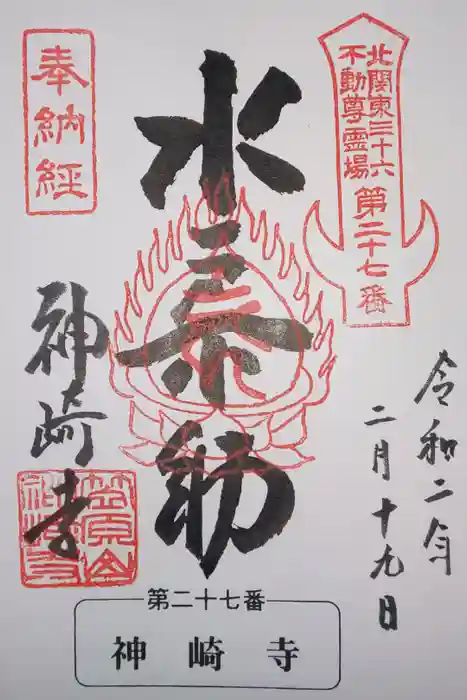 北関東三十六
不動尊霊場
第二十七番
令和二年
二月十九日
奉納経
水
動
神崎寺
笠原山
神崎寺
第二十七番
神崎寺